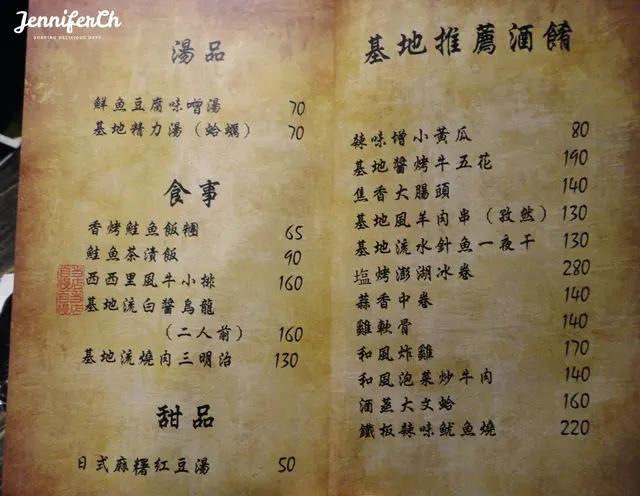 JenniferCh
SHARING DELICIOUS DAYS
湯品
鮮魚豆腐味噌湯 70
基地精力湯（蛤蠣） 70
食事
香烤鮭魚飯糰 65
鮭魚茶漬飯 90
西西里風牛小排 160
基地流白醬烏龍
（二人前） 160
基地流燒肉三明治 130
甜品
日式麻糬紅豆湯 50
基地推薦酒餚
辣味增小黃瓜 80
基地醬烤牛五花 190
焦香大腸頭 140
基地風羊肉串（孜然） 130
基地流水針魚一夜干 130
塩烤澎湖冰卷 280
蒜香中卷 140
雞軟骨 140
和風炸雞 170
和風泡菜炒牛肉 140
酒蒸大文蛤 160
鐵板辣味魷魚燒 220